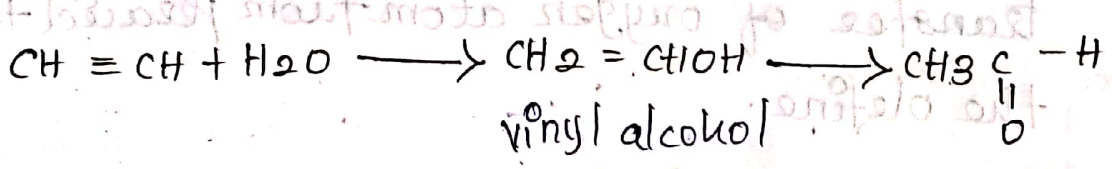 CH ≡ CH + H2O ⟶ CH2 = CHOH ⟶ CH3 C - H
||
O
vinyl alcohol